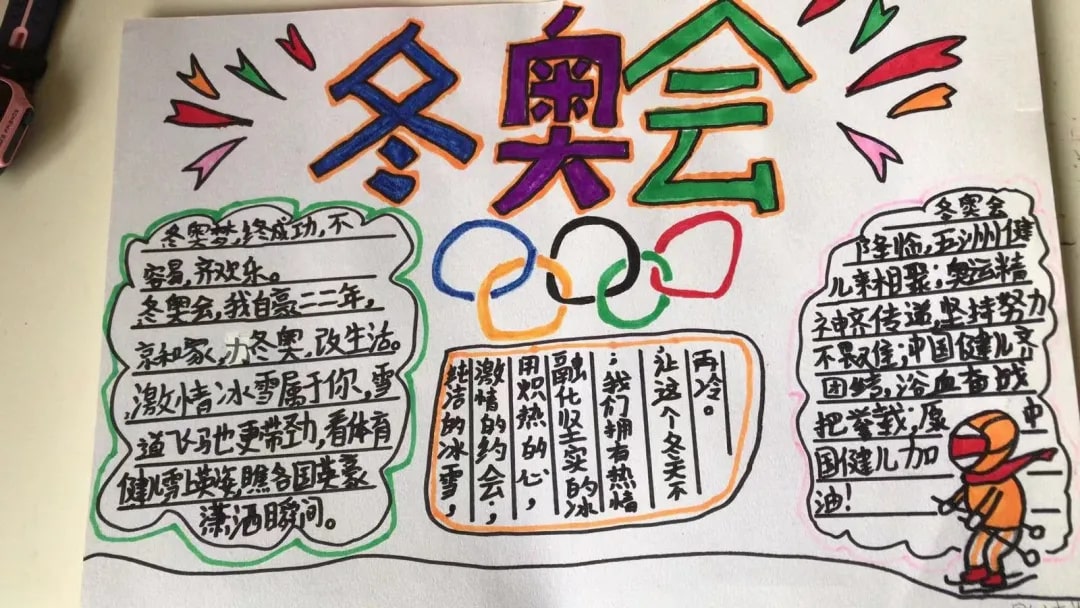 冬奥会
冬奥梦,终成功,不
容易,齐欢乐。
冬奥会,我自豪二二年,
京和家,办冬奥,改生活。
激情冰雪属于你,雪
道飞马也更带劲,看体育
健儿雪上英姿,瞧各国英豪
潇洒瞬间。
纯洁的冰雪,
激情的约会;
用炽热的心,
融化坚实的冰
;我们拥有热情
让这个冬天不
再冷。
冬奥会
降临,五洲健
儿来相聚;奥运精
神齐传递,坚持努力
不畏难;中国健儿齐
团结,浴血奋战
把誉载;愿 中
国健儿加
油!